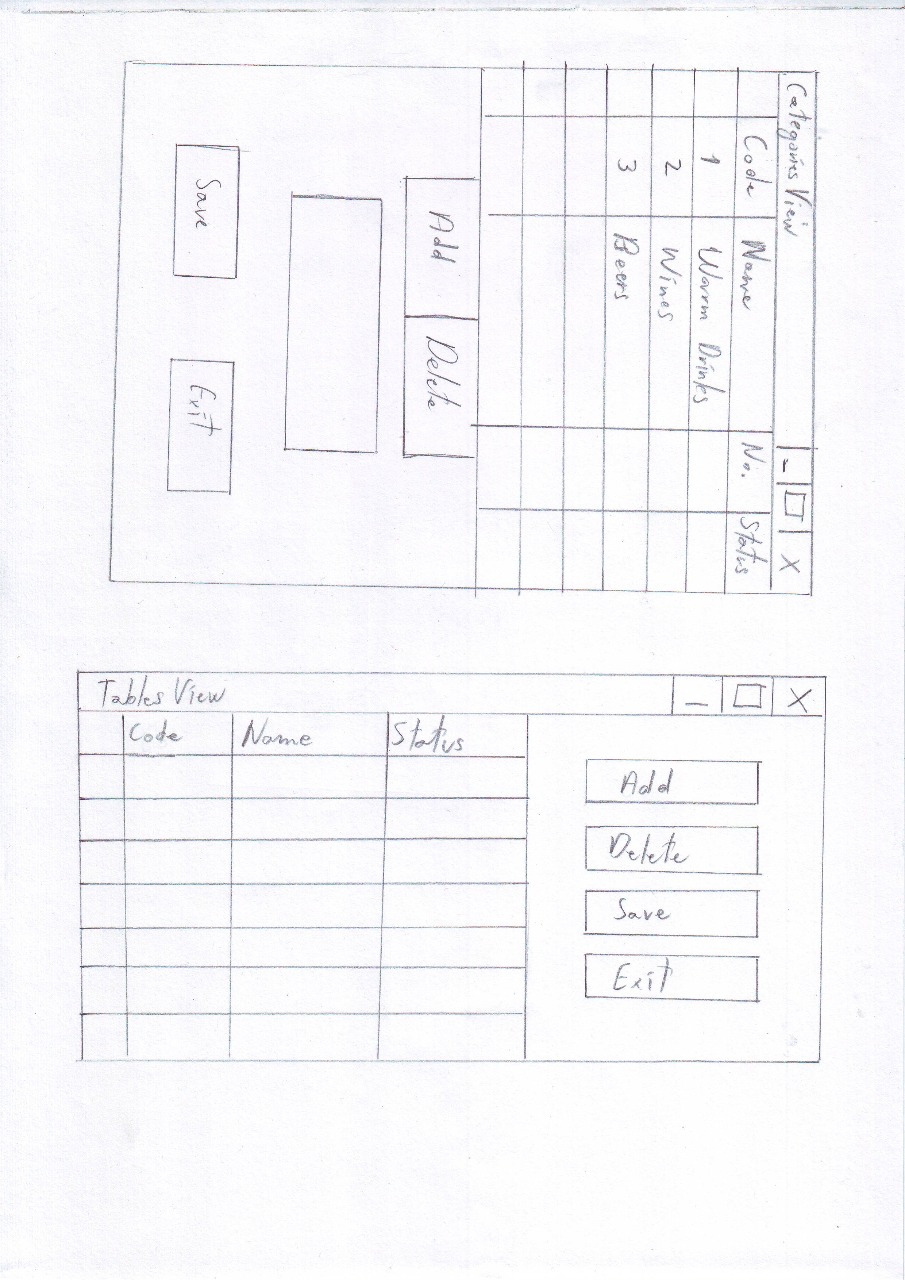 Categories View - □ X
Code Name No. Status
1 Warm Drinks
2 Wines
3 Beers
Add Delete
Save Exit
Tables View - □ X
Code Name Status
Add
Delete
Save
Exit